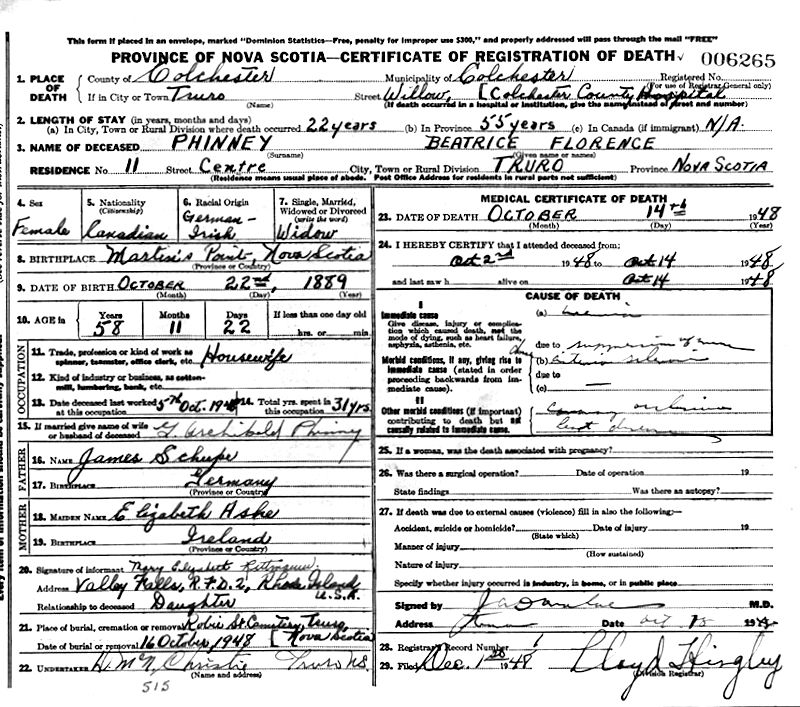 This form if placed in an envelope, marked "Dominion Statistics—Free, penalty for improper use $300," and properly addressed will pass through the mail "FREE"
PROVINCE OF NOVA SCOTIA—CERTIFICATE OF REGISTRATION OF DEATH 006265
1. PLACE OF DEATH County of Colchester Municipality of Colchester Registered No.
(For use of Registrar General only)
If in City or Town Truro Street Willow, [Colchester County Hospital
(Name) (If death occurred in a hospital or institution, give the name instead of street and number)
2. LENGTH OF STAY (in years, months and days)
(a) In City, Town or Rural Division where death occurred 22 years (b) In Province 55 years (c) In Canada (if immigrant) N/A.
3. NAME OF DECEASED PHINNEY BEATRICE FLORENCE
(Surname) (Given name or names)
RESIDENCE No 11 Street Centre City, Town or Rural Division TRURO Province NOVA SCOTIA
(Residence means usual place of abode. Post Office Address for residents in rural parts not sufficient)
4. Sex Female
5. Nationality (Citizenship) Canadian
6. Racial Origin German-Irish
7. Single, Married, Widowed or Divorced (write the word) Widow
8. BIRTHPLACE Martin's Point, Nova Scotia
(Province or Country)
9. DATE OF BIRTH October 22nd, 1889
(Month) (Day) (Year)
10. AGE in Years 58 Months 11 Days 22 If less than one day old
hrs. or min.
OCCUPATION
11. Trade, profession or kind of work as spinner, teamster, office clerk, etc. Housewife
12. Kind of industry or business, as cotton-mill, lumbering, bank, etc.
13. Date deceased last worked at this occupation 5th Oct. 1948 14. Total yrs. spent in this occupation 31 yrs.
15. If married give name of wife or husband of deceased G. Archibald Phinney
FATHER
16. NAME James Schupe
17. BIRTHPLACE Germany
(Province or Country)
MOTHER
18. MAIDEN NAME Elizabeth Ashe
19. BIRTHPLACE Ireland
(Province or Country)
20. Signature of informant Mary Elizabeth
Address Valley Falls, R.F.D.2, Rhode Island U.S.A.
Relationship to deceased Daughter
21. Place of burial, cremation or removal Robie St Cemetery, Truro
Date of burial or removal 16 October, 1948 [Nova Scotia
22. UNDERTAKER H. McN. Christie Truro N.S.
(Name and address)
515
MEDICAL CERTIFICATE OF DEATH
23. DATE OF DEATH OCTOBER 14th 1948
(Month) (Day) (Year)
24. I HEREBY CERTIFY that I attended deceased from:
Oct 2nd 1948 to Oct 14 1948
and last saw h alive on Oct 14 1948
CAUSE OF DEATH
I
Immediate cause
Give disease, injury or complication which caused death, not the mode of dying, such as heart failure, asphyxia, asthenia, etc.
(a) uremia
due to suppression of urine
Morbid conditions, if any, giving rise to immediate cause (stated in order proceeding backwards from immediate cause).
(b)
due to
(c)
II
Other morbid conditions (if important) contributing to death but not causally related to immediate cause.
coronary
25. If a woman, was the death associated with pregnancy?
26. Was there a surgical operation? Date of operation 19
State findings Was there an autopsy?
27. If death was due to external causes (violence) fill in also the following:—
Accident, suicide or homicide? Date of injury 19
(State which)
Manner of injury
(How sustained)
Nature of injury
Specify whether injury occurred in industry, in home, or in public place
Signed by M.D.
Address Truro Date Oct 1948
28. Registrar's Record Number
29. Filed Dec. 1st 1948 Lloyd Hingley
(Division Registrar)